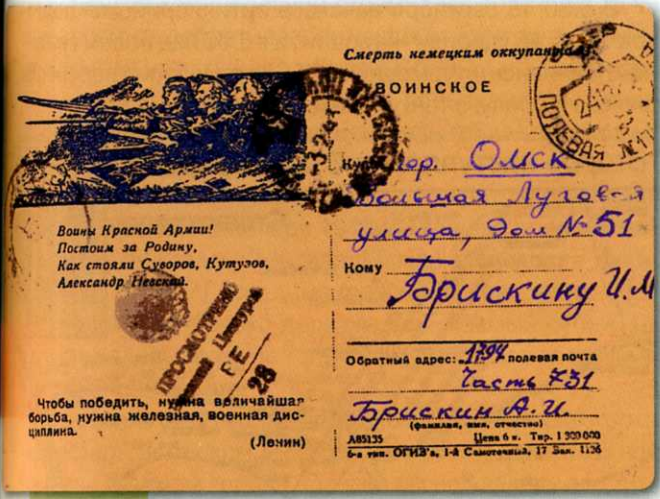 Смерть немецким оккупантам!
ВОИНСКОЕ
ПОЛЕВАЯ
Куда гор. Омск
Большая Луговая
улица, дом № 51
Кому
Брискину И. М
Обратный адрес: 1794 полевая почта
Часть 731
Брискин А. И.
(фамилия, имя, отчество)
А85135 Цена 6 к. Тир. 1 300 000
6-я тип. ОГИЗ'а, 1-й Самотечный, 17 Зак. 1136
Воины Красной Армии!
Постоим за Родину,
Как стояли Суворов, Кутузов,
Александр Невский.
ПРОСМОТРЕНО
Военной Цензурой
28
Чтобы победить, нужна величайшая
борьба, нужна железная, военная дис-
циплина.
(Ленин)